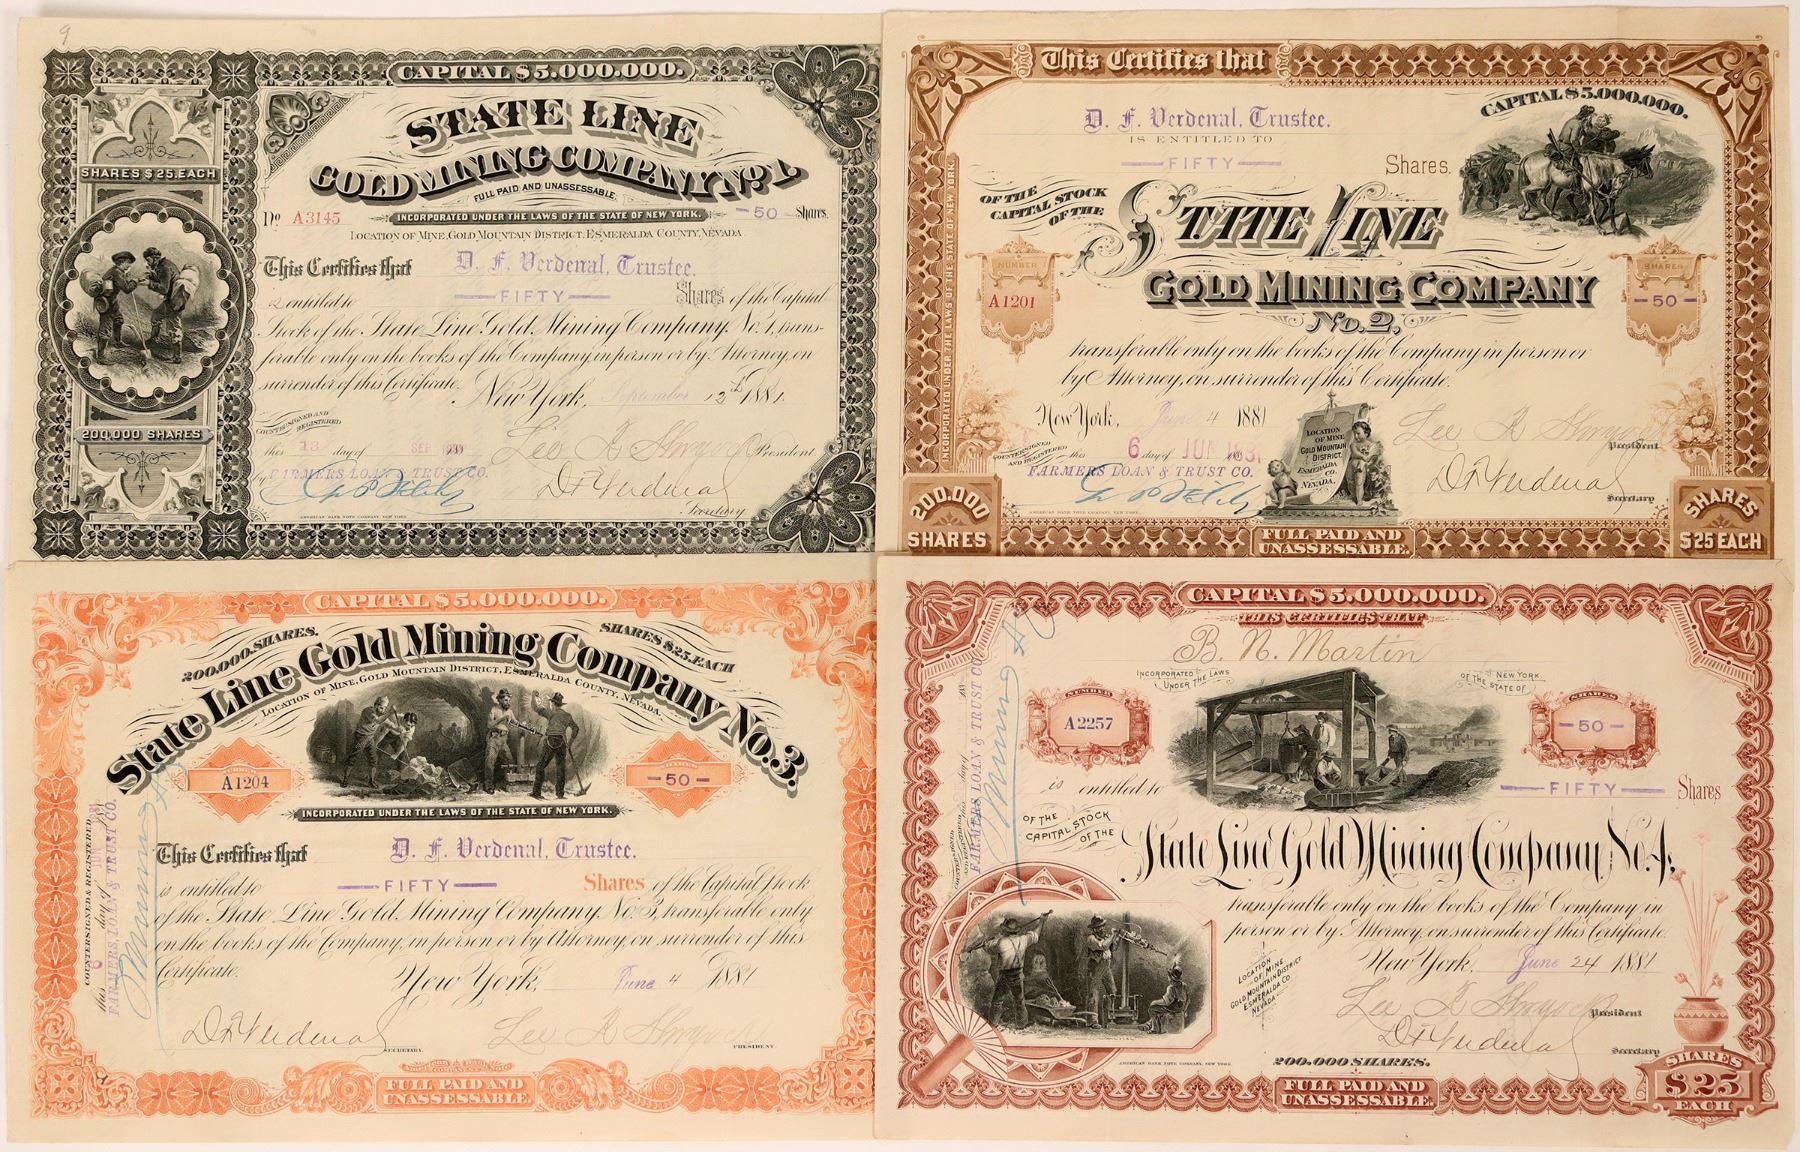 9
CAPITAL $5.000.000.
STATE LINE
GOLD MINING COMPANY No. 1.
FULL PAID AND UNASSESSABLE.
SHARES $25. EACH
No A3145
INCORPORATED UNDER THE LAWS OF THE STATE OF NEW YORK.
-50- Shares.
LOCATION OF MINE, GOLD MOUNTAIN DISTRICT, ESMERALDA COUNTY, NEVADA.
This Certifies that D. F. Verdenal, Trustee.
is entitled to FIFTY Shares of the Capital
Stock of the State Line Gold Mining Company, No. 1, trans-
ferable only on the books of the Company, in person or by Attorney, on
surrender of this Certificate. New York, September 12th 1881.
200,000 SHARES
COUNTERSIGNED AND
REGISTERED
this 13 day of SEP 1881
by FARMERS LOAN & TRUST CO.
Lee President
D F Verdenal
Secretary
AMERICAN BANK NOTE COMPANY, NEW YORK.
This Certifies that
CAPITAL $5.000.000.
D. F. Verdenal, Trustee.
IS ENTITLED TO
FIFTY Shares.
OF THE
CAPITAL STOCK
OF THE
STATE LINE
GOLD MINING COMPANY
No. 2,
NUMBER
A1201
SHARES
-50-
INCORPORATED UNDER THE LAWS OF THE STATE OF NEW YORK.
transferable only on the books of the Company in person or
by Attorney, on surrender of this Certificate.
New York, June 4 1881
COUNTERSIGNED
AND REGISTERED
this 6 day of JUN 1881
FARMERS LOAN & TRUST CO.
LOCATION
OF MINE
GOLD MOUNTAIN
DISTRICT,
ESMERALDA
CO.
NEVADA.
Lee President
D F Verdenal
Secretary
AMERICAN BANK NOTE COMPANY, NEW YORK.
200.000
SHARES
FULL PAID AND
UNASSESSABLE.
SHARES
$25 EACH
CAPITAL $5.000.000.
200.000. SHARES.
SHARES $25. EACH
State Line Gold Mining Company No. 3.
LOCATION OF MINE, GOLD MOUNTAIN DISTRICT, ESMERALDA COUNTY, NEVADA.
NUMBER
A1204
SHARES
-50-
INCORPORATED UNDER THE LAWS OF THE STATE OF NEW YORK.
This Certifies that D. F. Verdenal, Trustee.
is entitled to FIFTY Shares of the Capital Stock
of the State Line Gold Mining Company, No. 3, transferable only
on the books of the Company, in person or by Attorney, on surrender of this
Certificate. New York, June 4 1881
COUNTERSIGNED & REGISTERED
this 6 day of JUN 1881
FARMERS LOAN & TRUST CO.
D F Verdenal
SECRETARY.
Lee
PRESIDENT
FULL PAID AND
UNASSESSABLE.
CAPITAL $5.000.000.
THIS CERTIFIES THAT
B. N. Martin
INCORPORATED
UNDER THE LAWS
OF THE STATE OF
NEW YORK.
NUMBER
A2257
SHARES
-50-
is entitled to FIFTY Shares
OF THE
CAPITAL STOCK
OF THE
State Line Gold Mining Company No. 4,
transferable only on the books of the Company in
person or by Attorney, on surrender of this Certificate.
New York, June 24 1881
FARMERS LOAN & TRUST CO.
LOCATION
OF MINE
GOLD MOUNTAIN DISTRICT
ESMERALDA CO
NEVADA
Lee President
D F Verdenal
Secretary
AMERICAN BANK NOTE COMPANY, NEW YORK.
200.000 SHARES.
FULL PAID AND
UNASSESSABLE.
SHARES
$25
EACH